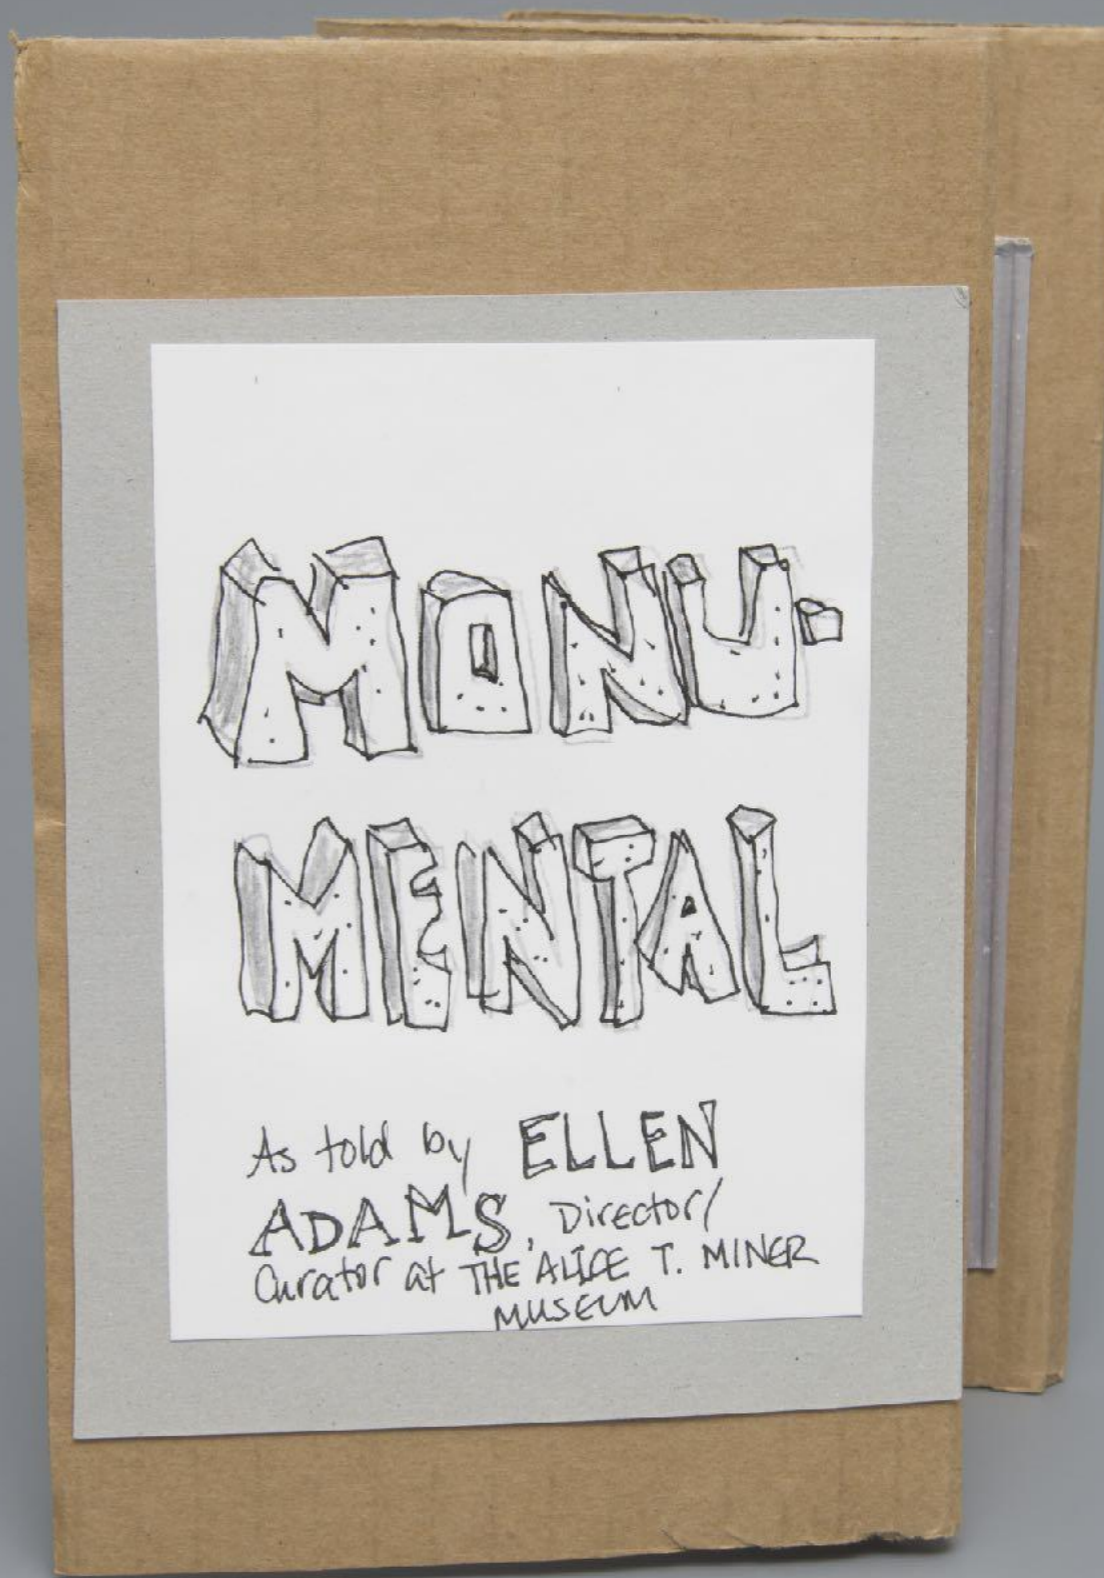 MONU-
MENTAL
As told by ELLEN
ADAMS, Director/
Curator at THE ALICE T. MINER
MUSEUM